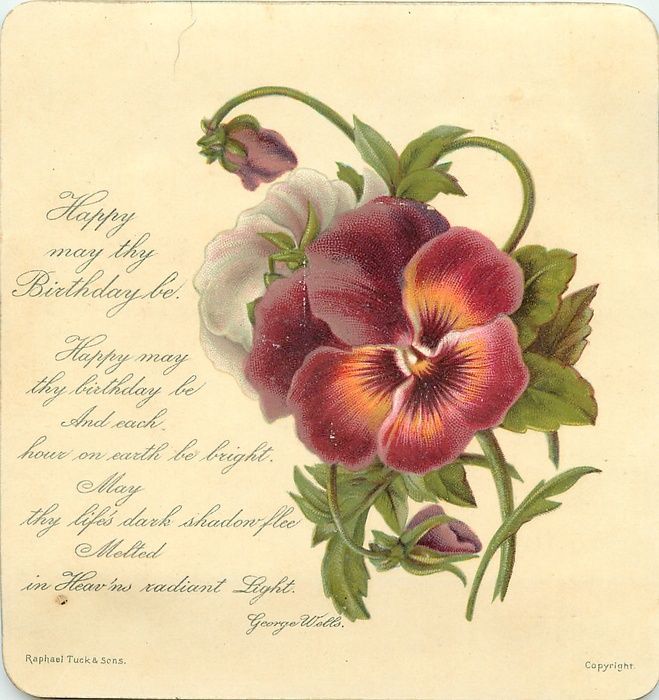 Happy
may thy
Birthday be.
Happy may
thy birthday be
And each
hour on earth be bright.
May
thy life's dark shadow flee
Melted
in Heav'ns radiant Light.
George Wells.
Raphael Tuck & Sons.
Copyright.